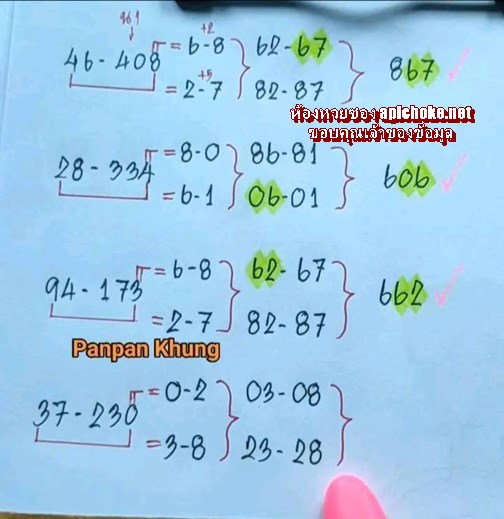 บน 1
+2
46 - 408 = 6-8 62-67 867
+5
= 2-7 82-87
ห้องหวยซอง apichoke.net
ขอบคุณเจ้าของข้อมูล
28 - 334 = 8-0 86-81 606
= 6-1 06-01
94 - 173 = 6-8 62-67 662
= 2-7 82-87
Panpan Khung
37 - 230 = 0-2 03-08
= 3-8 23-28